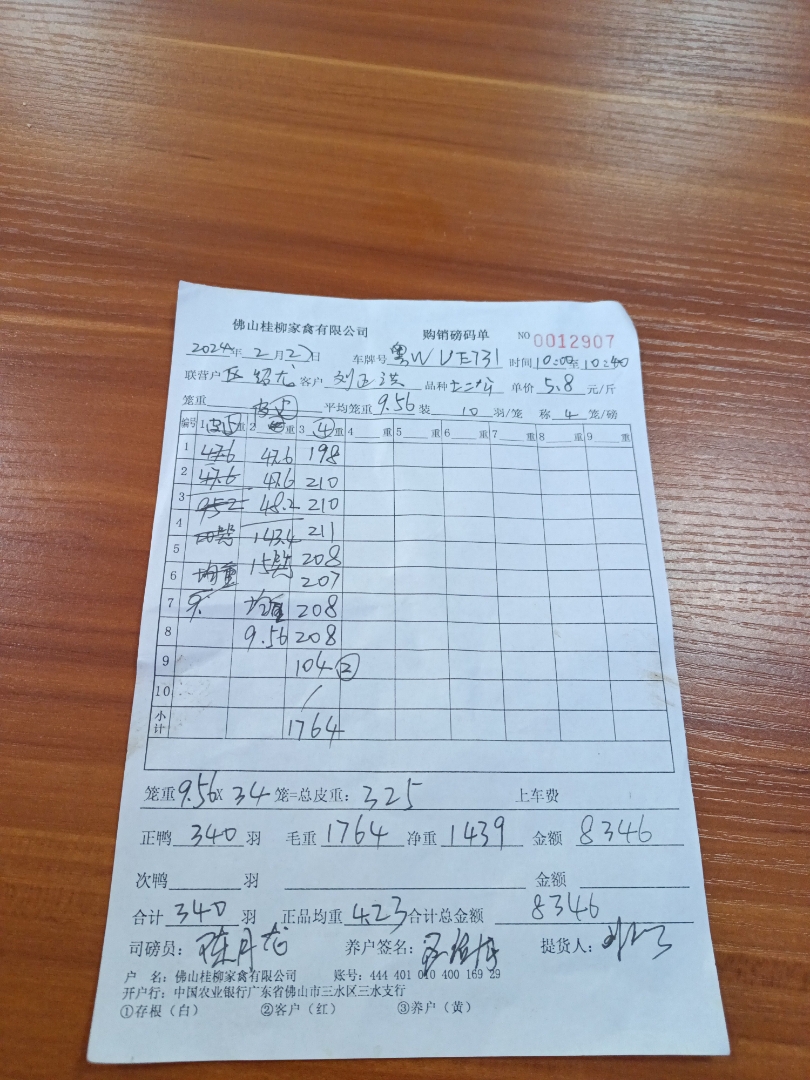 佛山桂柳家禽有限公司 购销磅码单 NO 0012907
2024年2月27日 车牌号粤WUE731 时间10:00至10:40
联营户 客户 刘正洪 品种 单价5.8元/斤
笼重 平均笼重9.56装10羽/笼 称4笼/磅
编号 1 重 2 重 3 ④ 重 4 重 5 重 6 重 7 重 8 重 9 重
1 47.6 47.6 198
2 47.6 47.6 210
3 95.2 48.2 210
4 143.4 211
5 15 208
6 均重 207
7 均重 208
8 9.56 208
9 104 ②
10
小计 1764
笼重9.56X34笼=总皮重:325 上车费
正鸭340羽 毛重1764净重1439 金额8346
次鸭 羽 金额
合计340羽 正品均重4.23合计总金额8346
司磅员: 养户签名: 提货人:
户 名: 佛山桂柳家禽有限公司 账号: 444 401 010 400 169 29
开户行: 中国农业银行广东省佛山市三水区三水支行
①存根(白) ②客户(红) ③养户(黄)